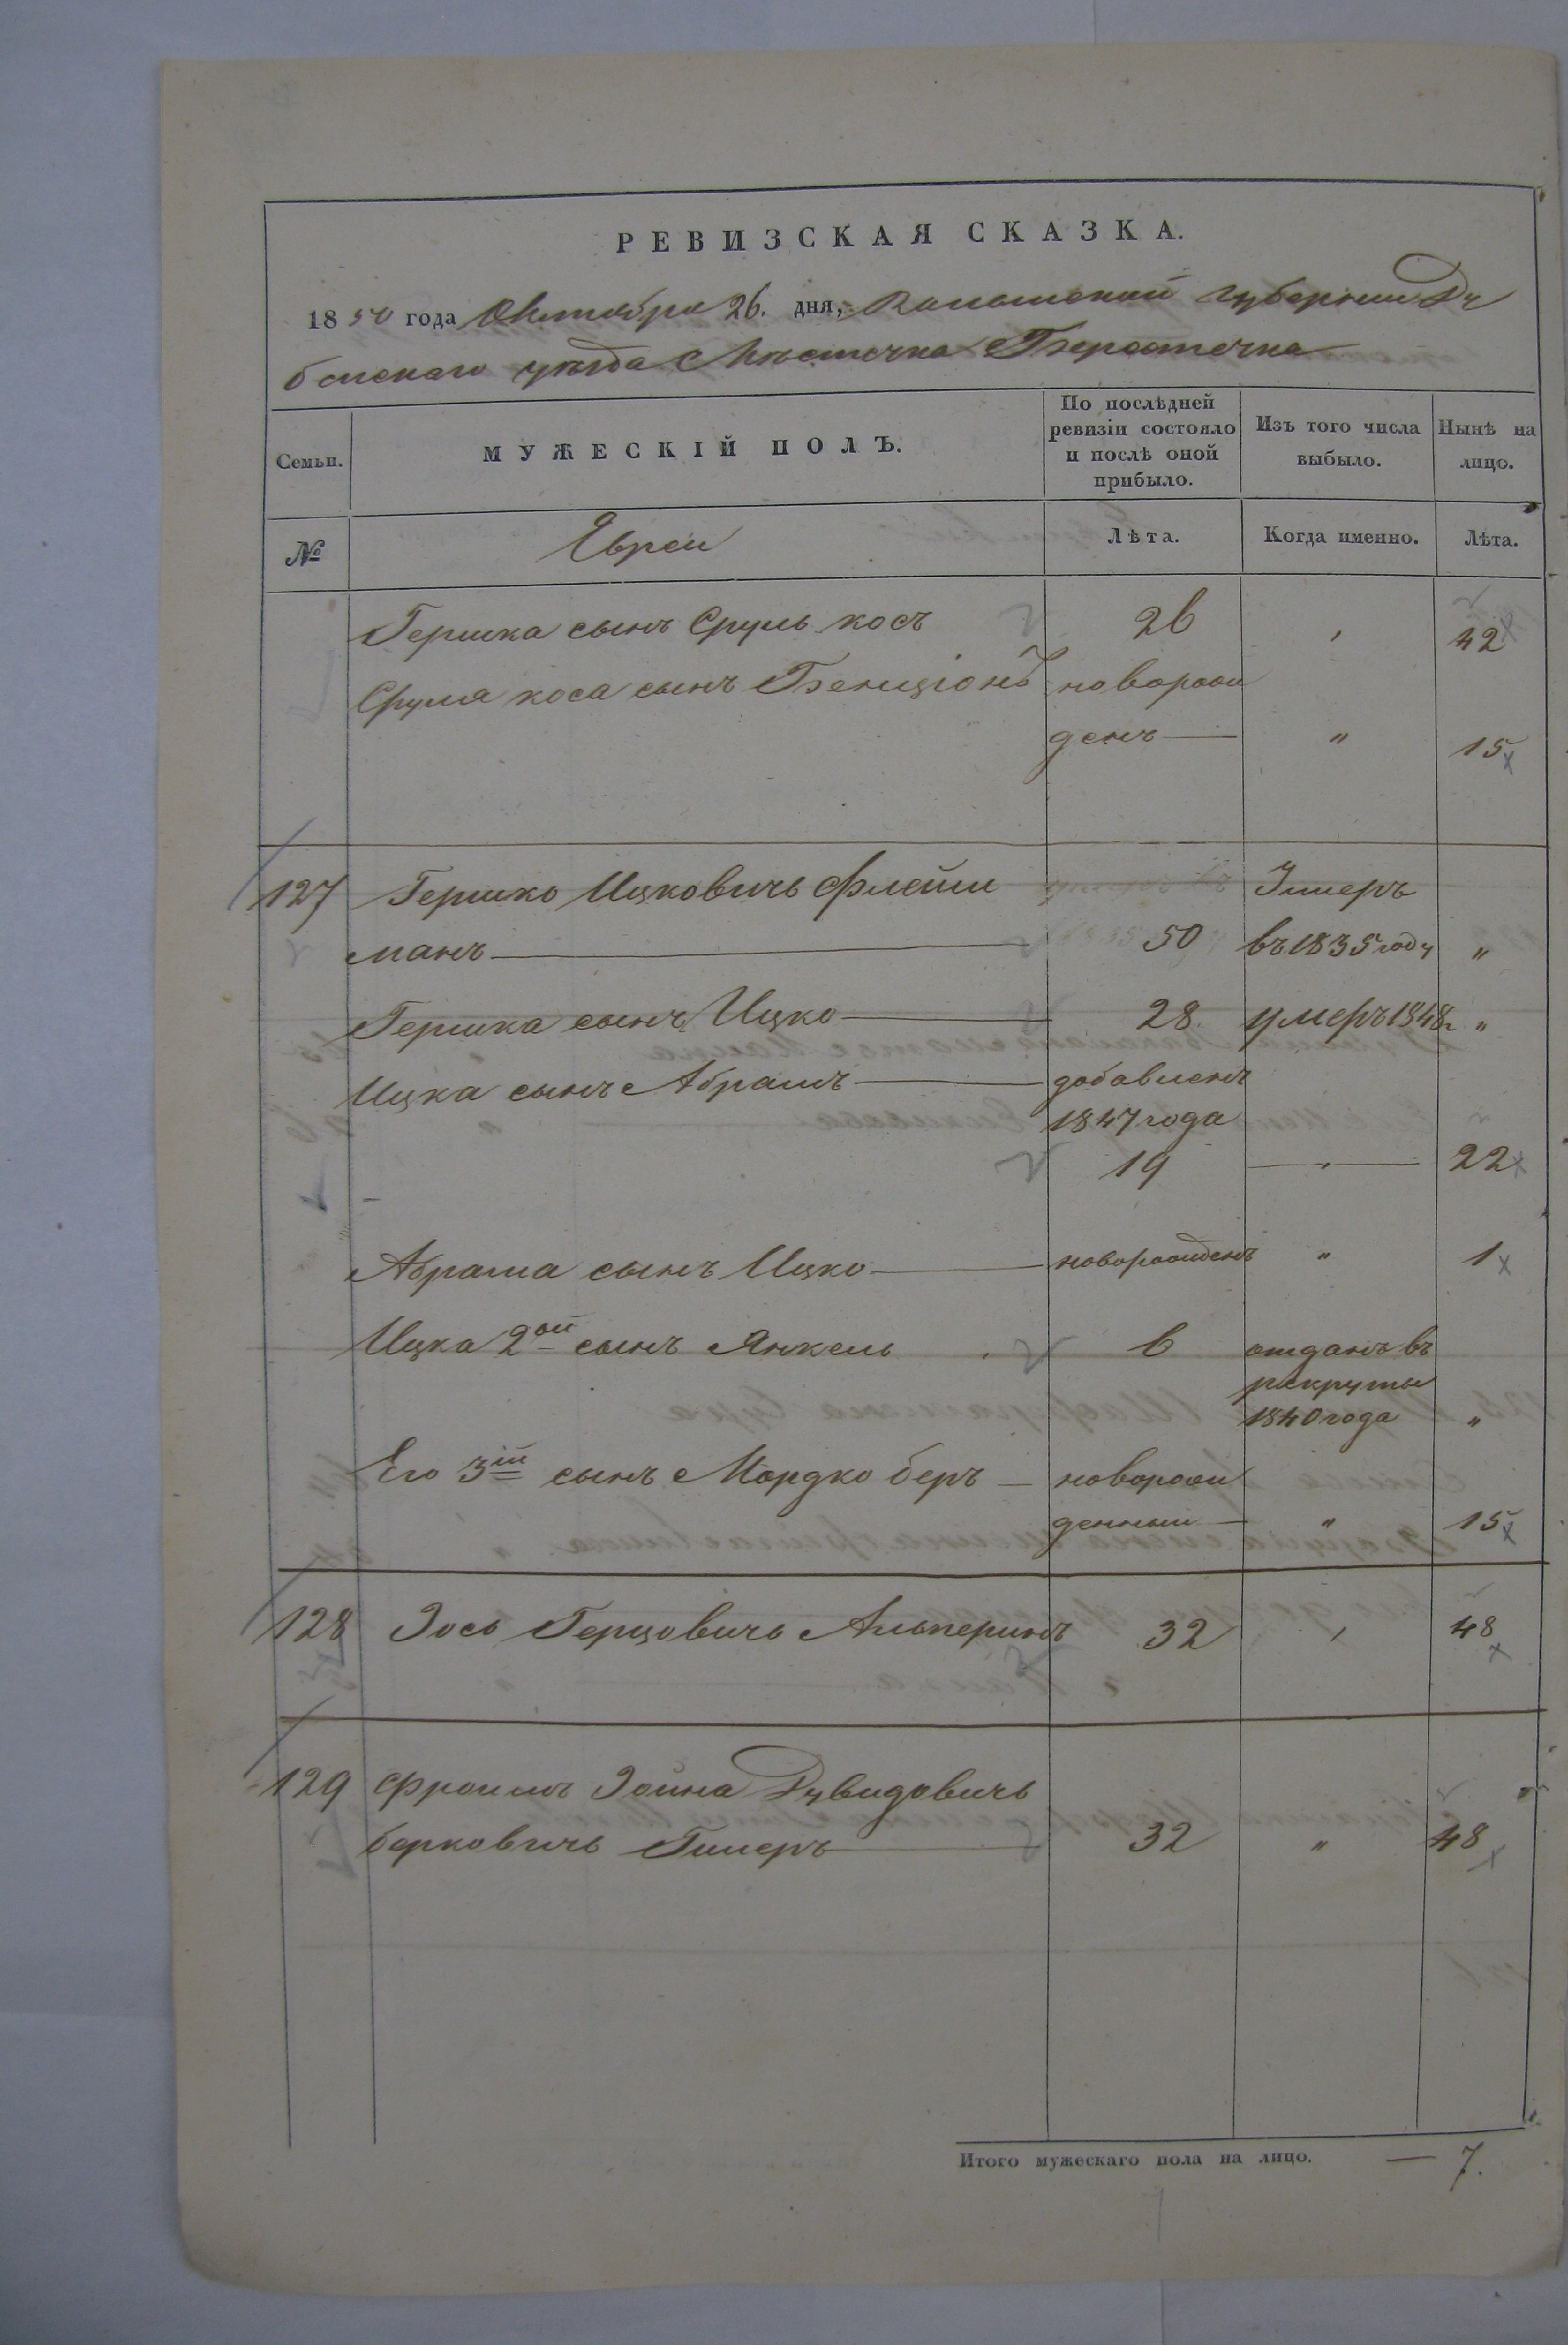 РЕВИЗСКАЯ СКАЗКА.
1850 года Октября 26. дня, Волынской губернии Ду
бенскаго уѣзда Мѣстечка Берестечка
Семьи.
МУЖЕСКІЙ ПОЛЪ.
По послѣдней
ревизіи состояло
и послѣ оной
прибыло.
Изъ того числа
выбыло.
Нынѣ на
лицо.
№
Евреи
Лѣта.
Когда именно.
Лѣта.
Гершка сынъ Сруль косъ 26 , 42
Сруля коса сынъ Бенціонъ новорож
денъ — " 15
127 Гершко Ицковичъ Флейш Умеръ
манъ — 50 въ 1835 году "
Гершка сынъ Ицко — 28. умеръ 1848г "
Ицка сынъ Абрамъ — добавленъ
1847 года
19 — " — 22
Абрама сынъ Ицко — новорожденъ " 1
Ицка 2ой сынъ Янкель 6 отданъ въ
рекруты
1840 года "
Его 3ій сынъ Мордко беръ — новорож
денный — " 15
128 Зось Герцовичъ Альперинъ 32 , 48
129 Фроимъ Дувидовичъ
берковичъ 32 " 48
Итого мужескаго пола на лицо. — 7.